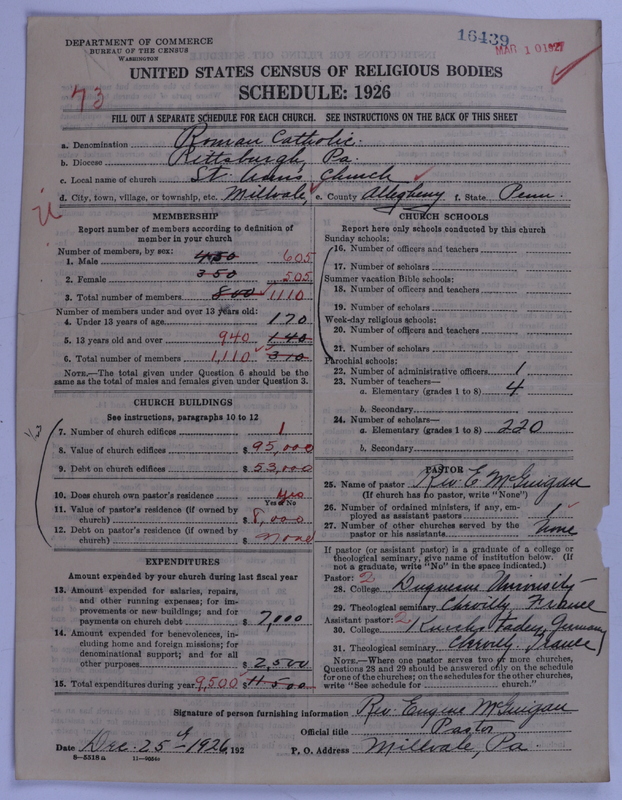 DEPARTMENT OF COMMERCE
BUREAU OF THE CENSUS
WASHINGTON
16439
MAR 10 1927
UNITED STATES CENSUS OF RELIGIOUS BODIES
SCHEDULE: 1926
73
FILL OUT A SEPARATE SCHEDULE FOR EACH CHURCH. SEE INSTRUCTIONS ON THE BACK OF THIS SHEET
a. Denomination Roman Catholic.
b. Diocese Pittsburgh, Pa.
c. Local name of church St. Anns Church
d. City, town, village, or township, etc. Millvale, e. County Allegheny f. State Penn.
MEMBERSHIP
Report number of members according to definition of
member in your church
Number of members, by sex:
1. Male 450 605
2. Female 350 505
3. Total number of members 800 1110
Number of members under and over 13 years old:
4. Under 13 years of age 170
5. 13 years old and over 940 140
6. Total number of members 1,110 310
NOTE.—The total given under Question 6 should be
the same as the total of males and females given under Question 3.
CHURCH BUILDINGS
See instructions, paragraphs 10 to 12
7. Number of church edifices 1
8. Value of church edifices $ 95,000
9. Debt on church edifices $ 53,000
10. Does church own pastor's residence Yes
Yes or No
11. Value of pastor's residence (if owned by
church) $ 8,000
12. Debt on pastor's residence (if owned by
church) $ none
EXPENDITURES
Amount expended by your church during last fiscal year
13. Amount expended for salaries, repairs,
and other running expenses; for im-
provements or new buildings; and for
payments on church debt $ 7,000
14. Amount expended for benevolences, in-
cluding home and foreign missions; for
denominational support; and for all
other purposes $ 2,500
15. Total expenditures during year 9,500 $ 11,500
CHURCH SCHOOLS
Report here only schools conducted by this church
Sunday schools:
16. Number of officers and teachers
17. Number of scholars
Summer vacation Bible schools:
18. Number of officers and teachers
19. Number of scholars
Week-day religious schools:
20. Number of officers and teachers
21. Number of scholars
Parochial schools:
22. Number of administrative officers 1
23. Number of teachers—
a. Elementary (grades 1 to 8) 4
b. Secondary
24. Number of scholars—
a. Elementary (grades 1 to 8) 220
b. Secondary
PASTOR
25. Name of pastor Rev. E. McGuigan
(If church has no pastor, write "None")
26. Number of ordained ministers, if any, em-
ployed as assistant pastors 1
27. Number of other churches served by the
pastor or his assistants none
If pastor (or assistant pastor) is a graduate of a college or
theological seminary, give name of institution below. (If
not a graduate, write "No" in the space indicated.)
Pastor: 2
28. College Duquesne University
29. Theological seminary Chevilly France
Assistant pastor: 2
30. College Germany
31. Theological seminary Chevilly, France
NOTE.—Where one pastor serves two or more churches,
Questions 28 and 29 should be answered only on the schedule
for one of the churches; on the schedules for the other churches,
write "See schedule for church."
Signature of person furnishing information Rev. Eugene McGuigan
Official title Pastor
Date Dec. 25th 1926, 192 P. O. Address Millvale, Pa.
8—5518a 11—9654c